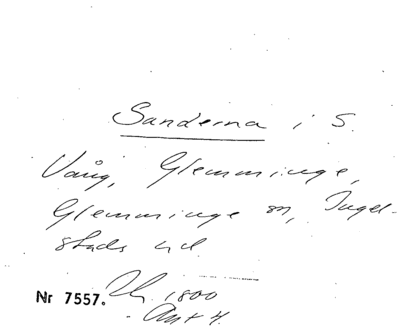 Sanderna i S.
Vång, Glemminge,
Glemminge sn, Ingel-
stads hd.
Nr 7557. 1800
Ant 4.